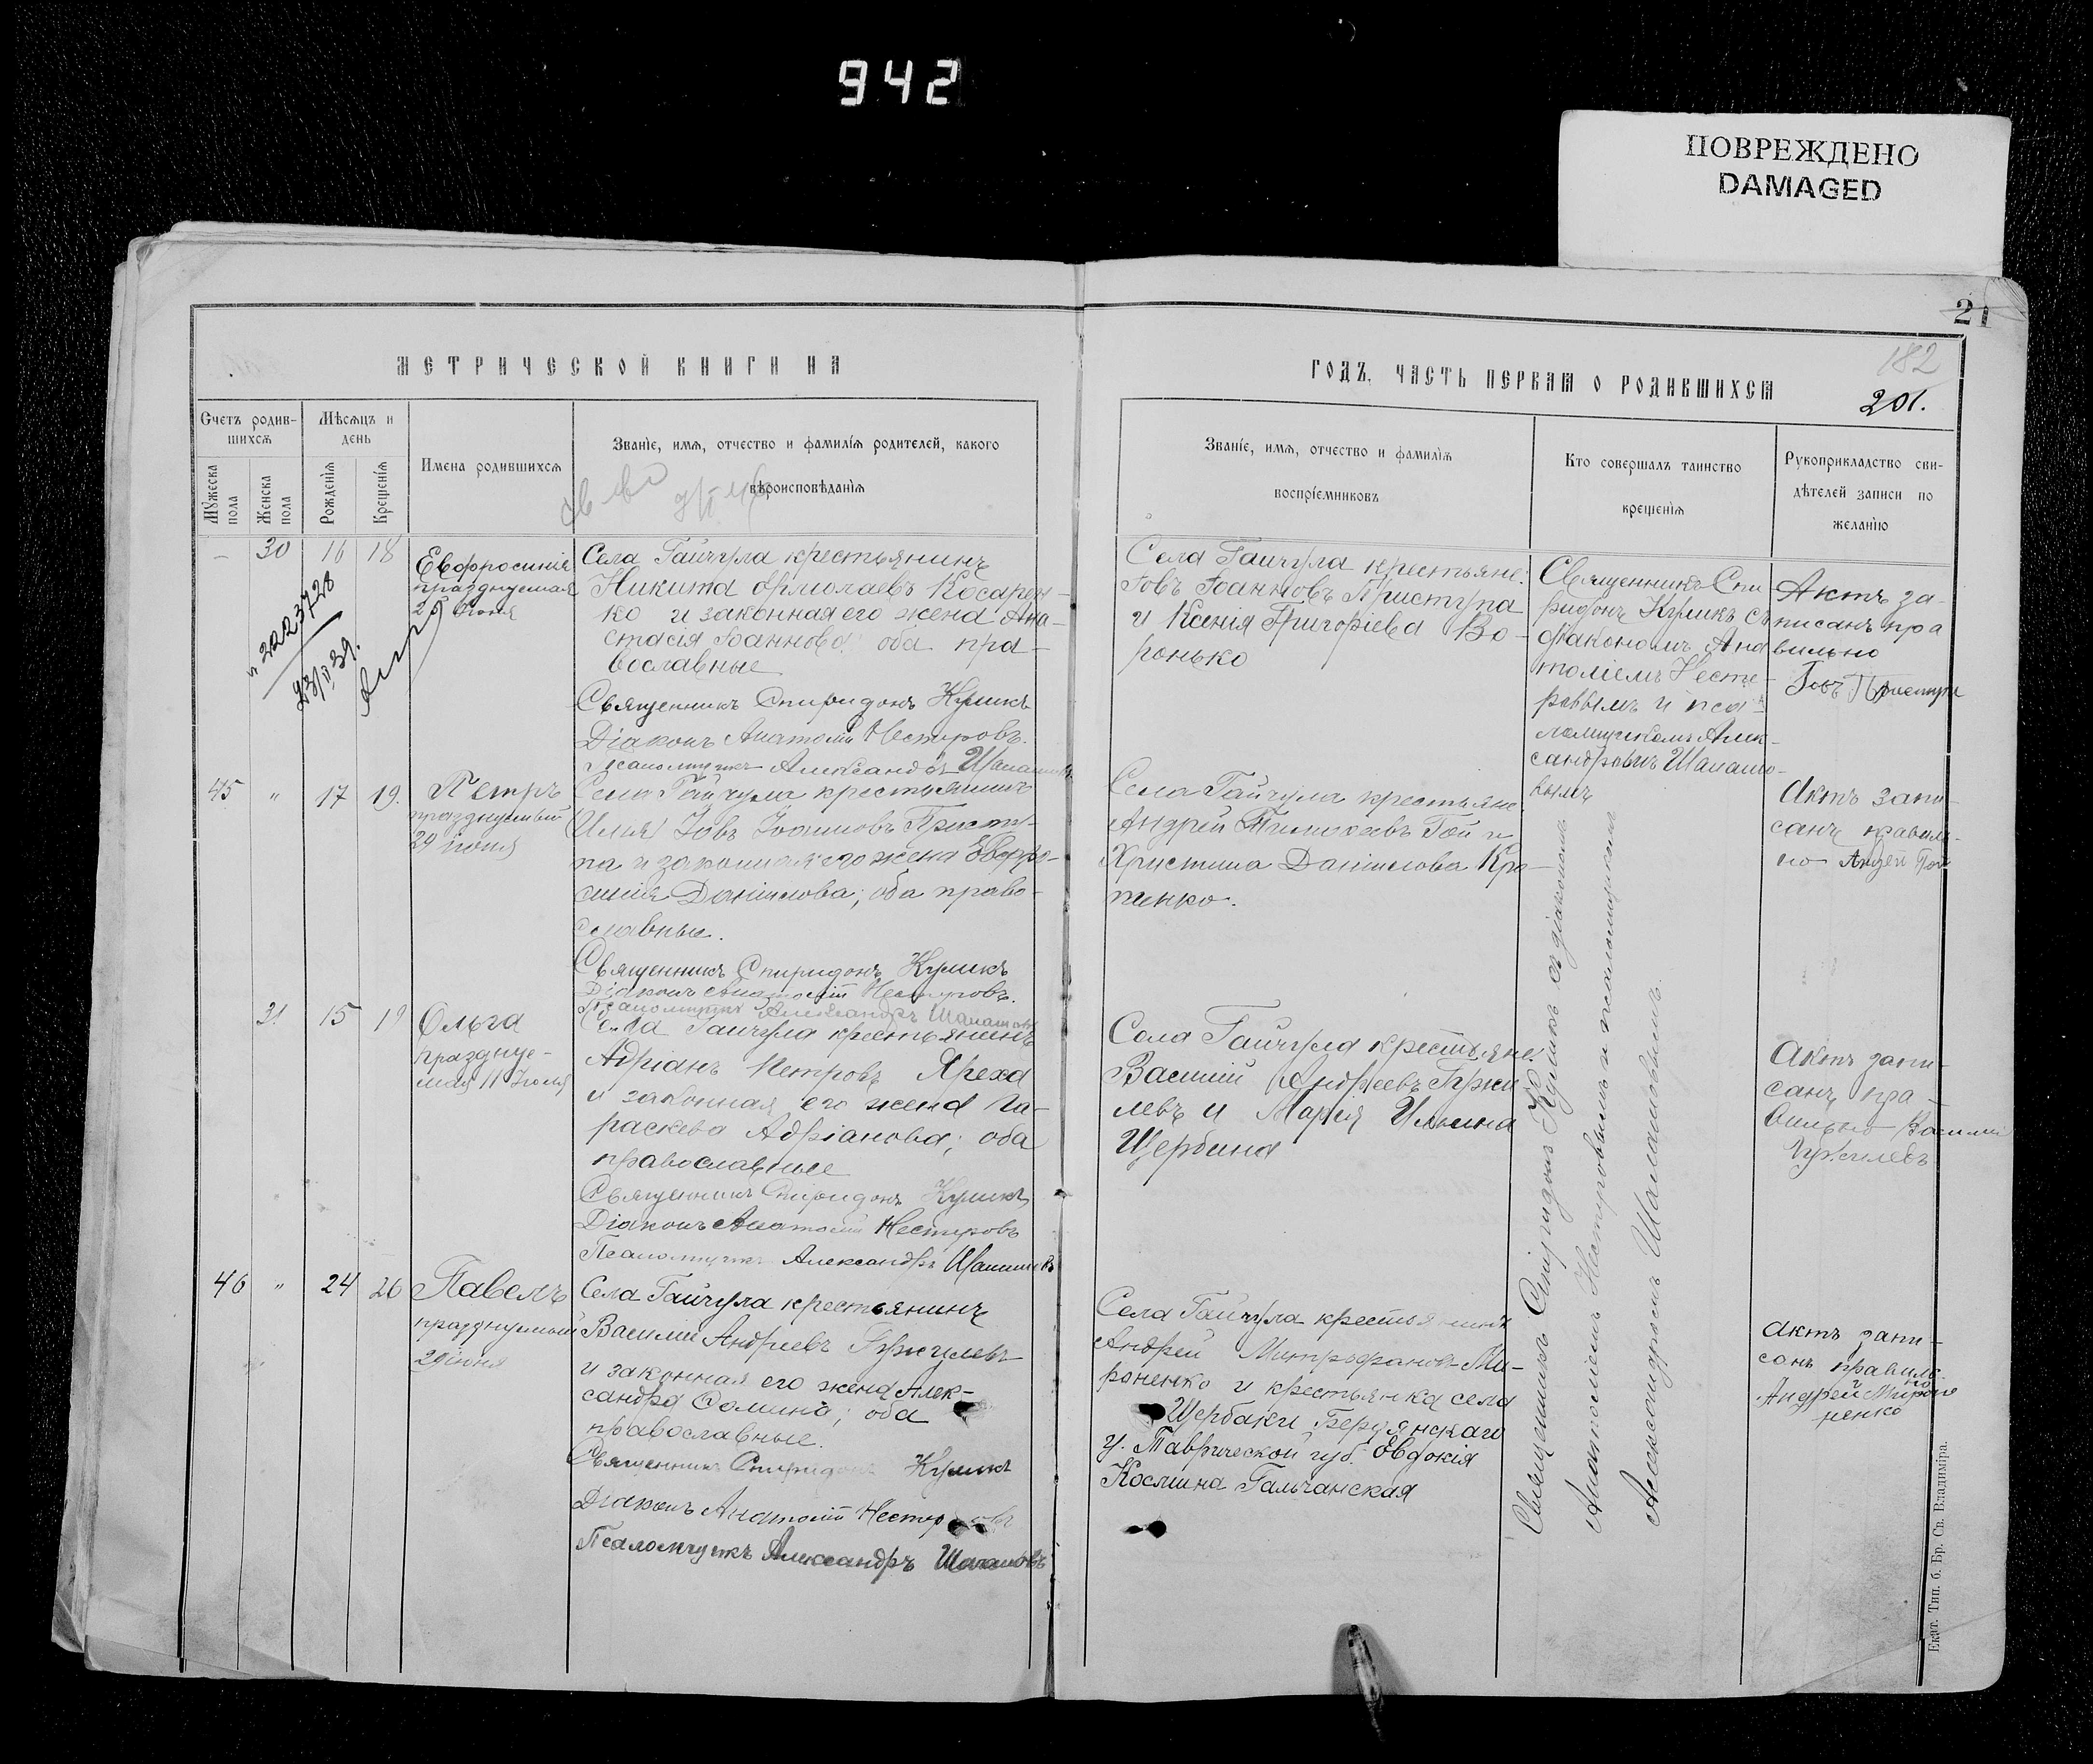 942
ПОВРЕЖДЕНО
DAMAGED
21
МЕТРИЧЕСКОЙ КНИГИ НА
ГОДЪ, ЧАСТЬ ПЕРВАЯ О РОДИВШИХСЯ
182
201.
Счетъ родив-
шихся
Мужеска
пола
Женска
пола
Мѣсяцъ и
день
Рожденія
Крещенія
Имена родившихся
Званіе, имя, отчество и фамилія родителей, какого
вѣроисповѣданія
Званіе, имя, отчество и фамилія
воспріемниковъ
Кто совершалъ таинство
крещенія
Рукоприкладство сви-
дѣтелей записи по
желанію
– 30 16 18
Евфросинія
празднуемая
25 Іюня
2223728
23/IV 39.
Села Гайчула крестьянинъ
Никита Ермолаевъ Косарен-
ко и законная его жена Ана-
стасія Іоаннова; оба пра-
вославные
Священникъ Спиридонъ Куликъ
Діаконъ Анатолій Нестеровъ.
Псаломщикъ Александръ
Села Гайчула крестьяне:
Іовъ Іоанновъ Приступа
и Ксенія Григоріева Во-
ронько
Священникъ Спи
ридонъ Куликъ съ
діакономъ Ана
толіемъ Несте-
ровымъ и пса-
ломщикомъ Алек-
сандромъ
Актъ за-
писанъ пра
вильно
Іовъ Приступа
45 " 17 19.
Петръ
празднуемый
29 іюня
Села Гайчула крестьянинъ
Іовъ Іоанновъ Присту-
па и законная его жена Евфро-
синія Даніилова; оба право-
славные.
Священникъ Спиридонъ Куликъ
Діаконъ Анатолій Нестеровъ.
Псаломщикъ Александръ
Села Гайчула крестьяне
Андрей Тимофеевъ Гой и
Христина Даніилова Кро-
пенко.
Актъ запи-
санъ правиль-
но Андрей Гой
31 15 19
Ольга
праздне-
мая 11 Іюля
Села Гайчула крестьянинъ
Адріанъ Петровъ Яреха
и законная его жена Па-
раскева Адріанова; оба
православные
Священникъ Спиридонъ Куликъ
Діаконъ Анатолій Нестеровъ
Псаломщикъ Александръ
Села Гайчула крестьяне:
Василій Андреевъ Гуржи
левъ и Марія Ильина
Щербина
Актъ запи-
санъ пра-
вильно Василій
Гуржилевъ
46 " 24 26
Павелъ
празднуемый
29 іюня
Села Гайчула крестьянинъ
Василій Андреевъ Гуржилевъ
и законная его жена Алек-
сандра Фомина; оба
православные.
Священникъ Спиридонъ Куликъ
Діаконъ Анатолій Нестеровъ
Псаломщикъ Александръ
Села Гайчула крестьянинъ
Андрей Митрофановъ Ми-
роненко и крестьянка села
Щербаки Бердянскаго
у. Таврической губ. Евдокія
Космина Гальчанская
Актъ запи-
санъ правиль-
но
Андрей Мироне
ненко
Священникъ Спиридонъ Куликъ съ діакономъ
Анатоліемъ Нестеровымъ и псаломщикомъ
Александромъ
Екат. Тип. б. Бр. Св. Владиміра.